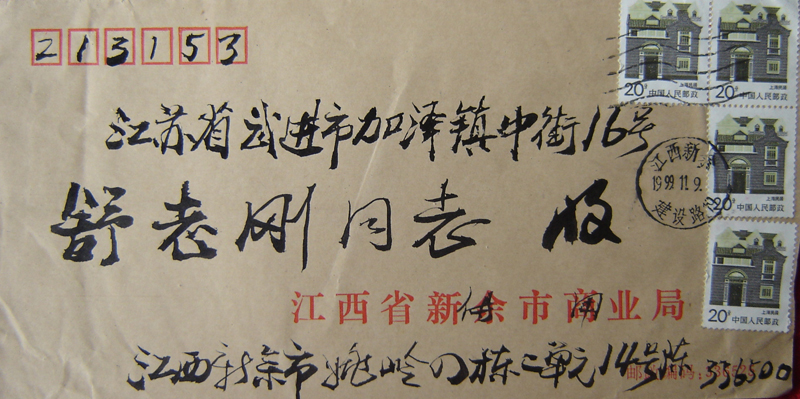 213153
江苏省武进市加泽镇中街16号
舒志刚同志 收
江西省新余市商业局
借用
江西新余市姚岭 栋二单元14号陈 336500
邮政编码:
20分 上海民居 中国人民邮政
20分 上海民居 中国人民邮政
20分 上海民居 中国人民邮政
20分 上海民居 中国人民邮政
江西新余
1999.11.9.
建设路